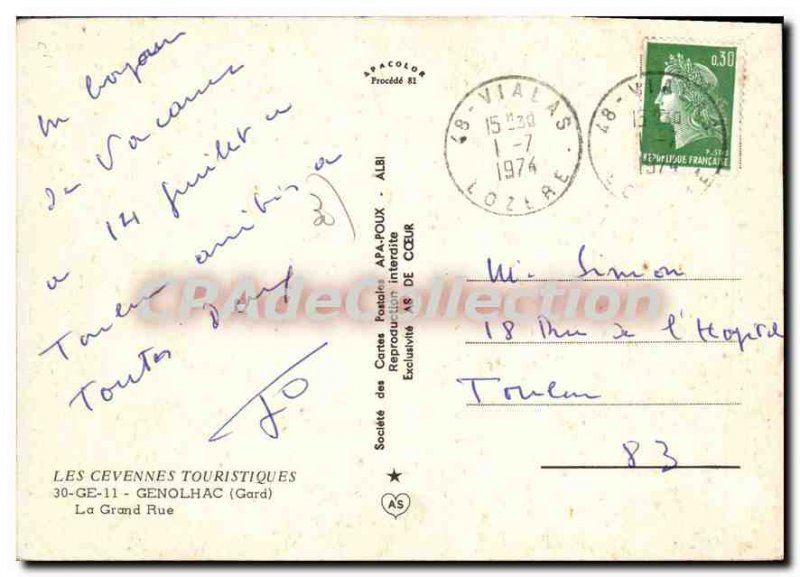 un bonjour
de Vacances
a 14 Juillet a
Toulon amitiés a
Toutes Deux
JO
LES CEVENNES TOURISTIQUES
30-GE-11 - GENOLHAC (Gard)
La Grand Rue
APACOLOR
Procédé 81
Société des Cartes Postales APA-POUX - ALBI
Reproduction interdite
Exclusivité AS DE CŒUR
AS
48-VIALAS
15 H30
1-7
1974
LOZERE
48-VIA
1974
0,30
POSTES
REPUBLIQUE FRANÇAISE
CPAdeCollection
Mr Simion
18 Rue de l'Hopital
Toulon
83